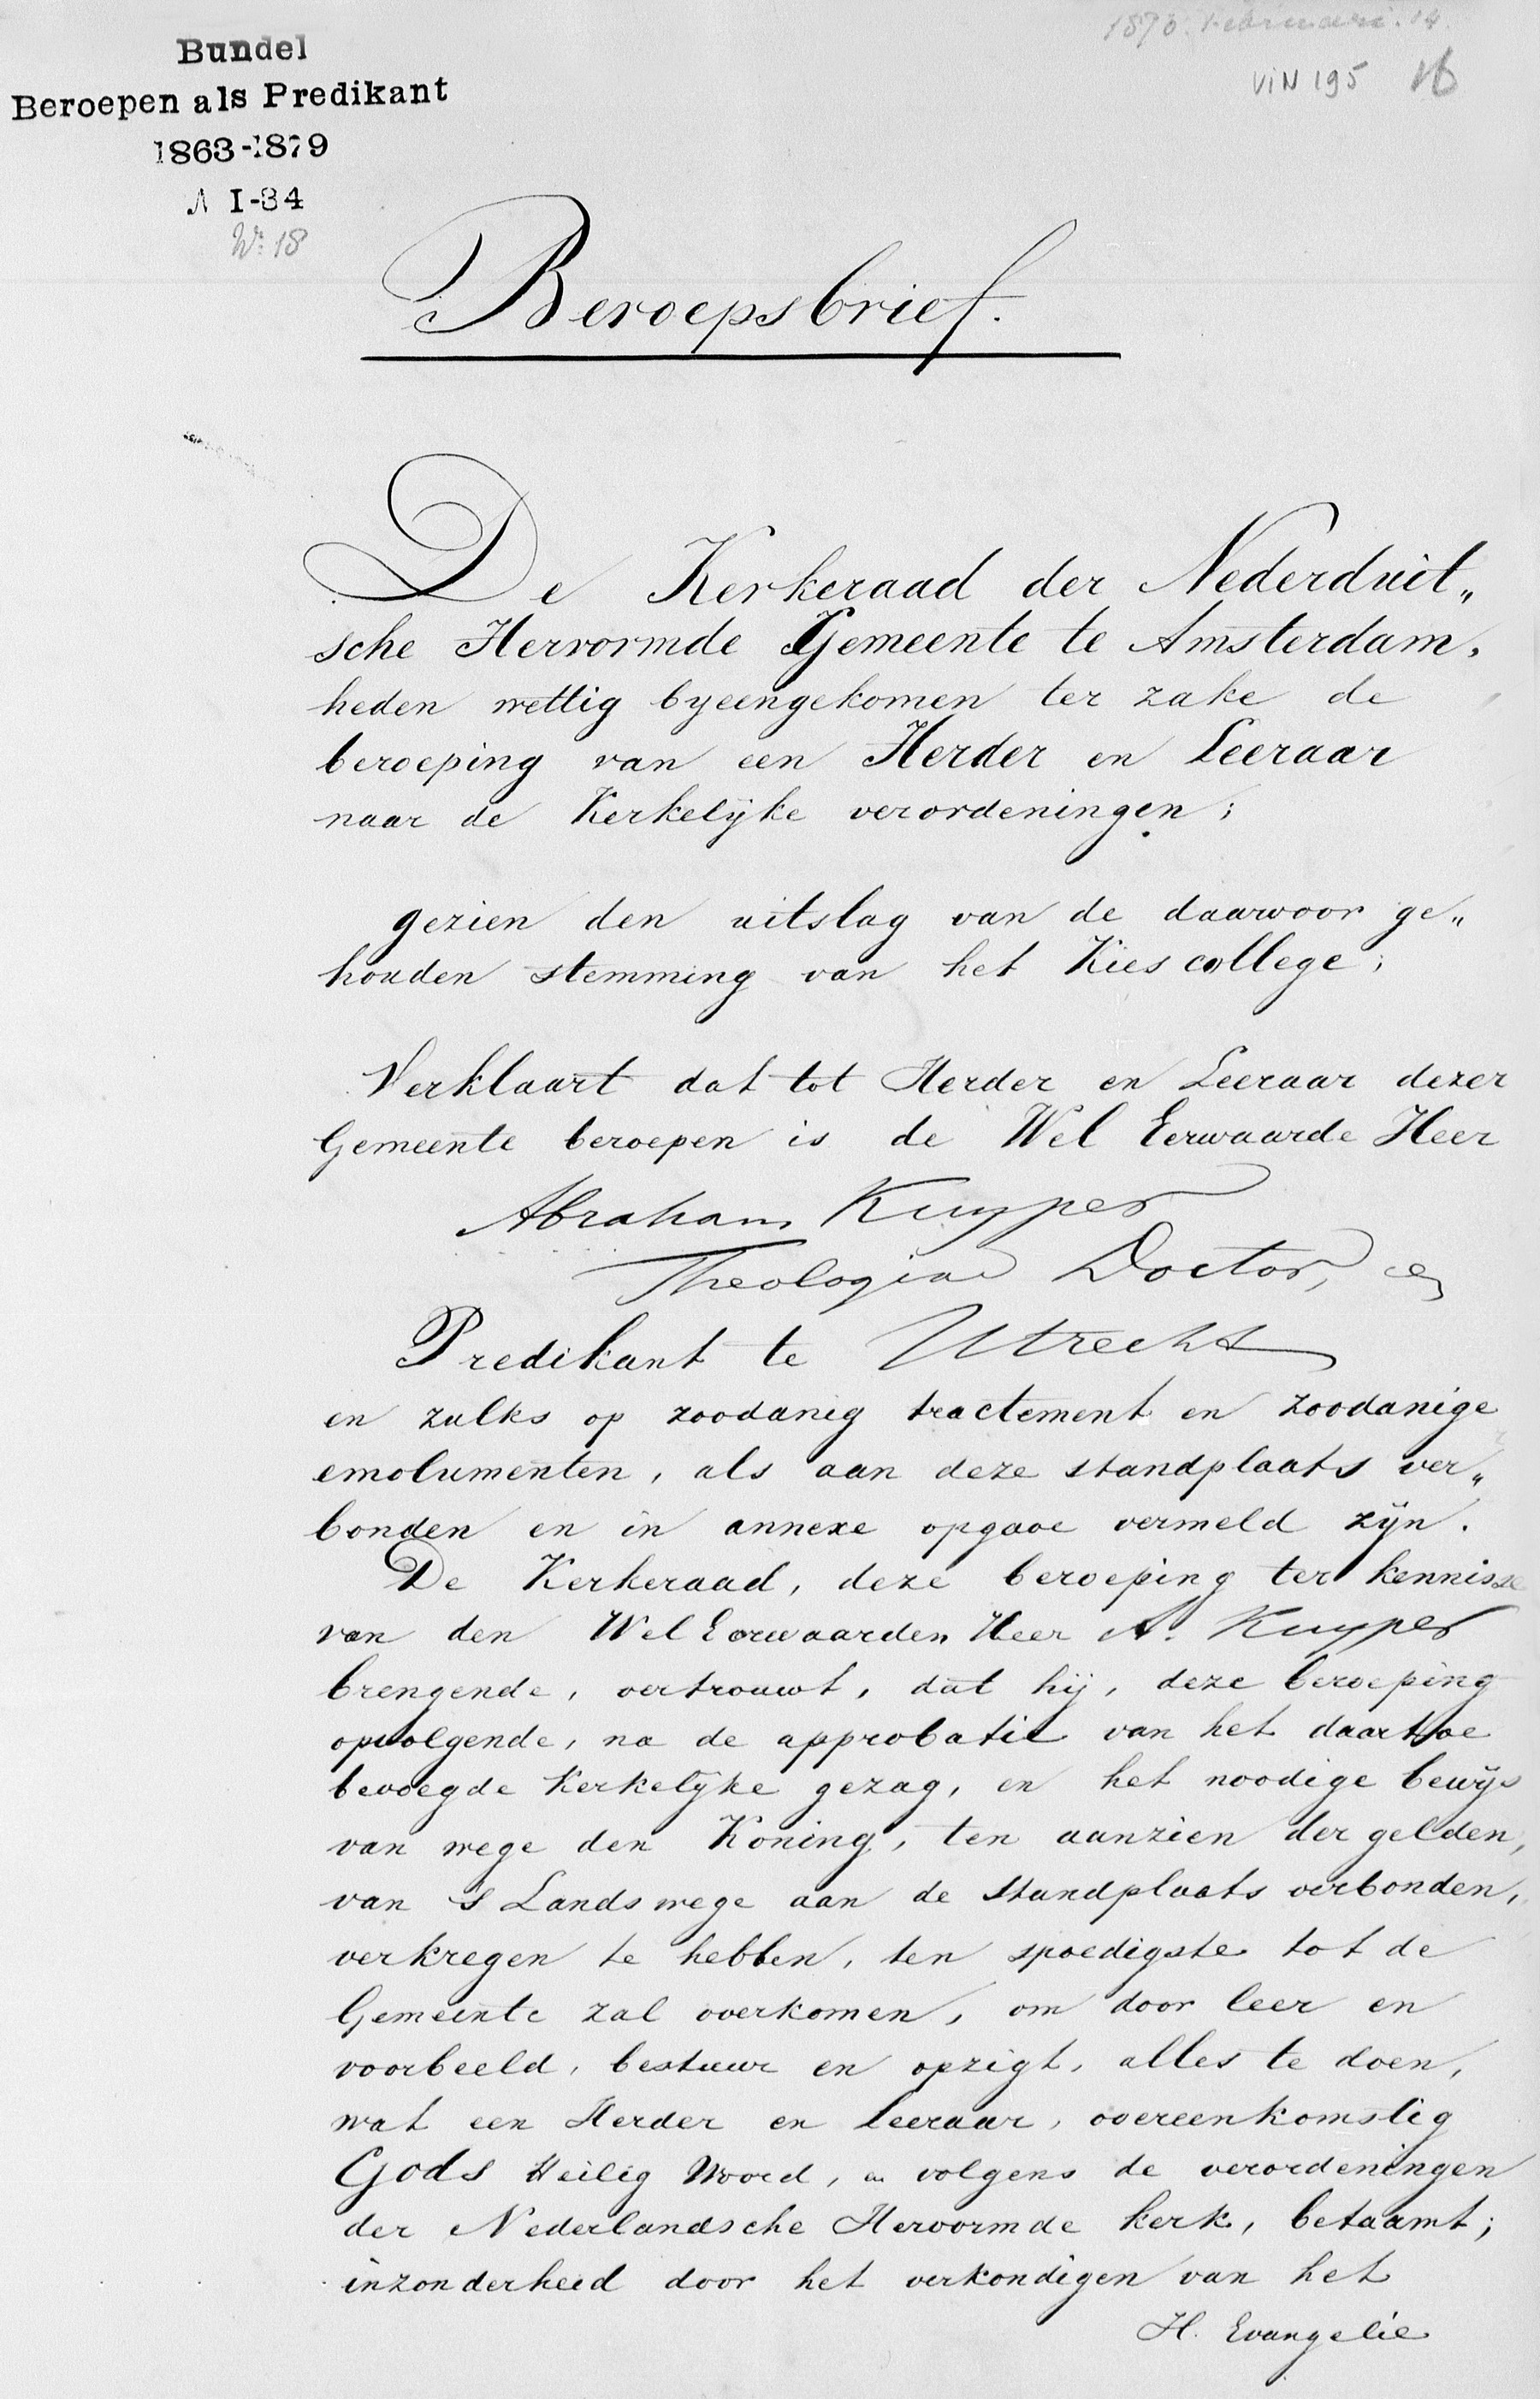 Bundel
Beroepen als Predikant
1863-1879
A I-34
No. 18
1870. Februari. 14.
VIN 195
Beroepsbrief.
De Kerkeraad der Nederduit„
sche Hervormde Gemeente te Amsterdam,
heden wettig byeengekomen ter zake de
beroeping van een Herder en Leeraar
naar de Kerkelijke verordeningen;
gezien den uitslag van de daarvoor ge„
houden stemming van het Kiescollege;
Verklaart dat tot Herder en Leeraar dezer
Gemeente beroepen is de Wel Eerwaarde Heer
Abraham Kuyper
Theologiae Doctor, en
Predikant te Utrecht
en zulks op zoodanig tractement en zoodanige
emolumenten, als aan deze standplaats ver„
bonden en in annexe opgave vermeld zijn.
De Kerkeraad, deze beroeping ter kennisse
van den Wel Eerwaarden Heer A. Kuyper
brengende, vertrouwt, dat hij, deze beroeping
opvolgende, na de approbatie van het daartoe
bevoegde Kerkelijke gezag, en het noodige bewijs
van wege den Koning, ten aanzien der gelden,
van 's Lands wege aan de standplaats verbonden,
verkregen te hebben, ten spoedigste tot de
Gemeente zal overkomen, om door leer en
voorbeeld, bestuur en opzigt, alles te doen,
wat een Herder en Leeraar, overeenkomstig
Gods Heilig Woord, en volgens de verordeningen
der Nederlandsche Hervormde kerk, betaamt;
inzonderheid door het verkondigen van het
H. Evangelie